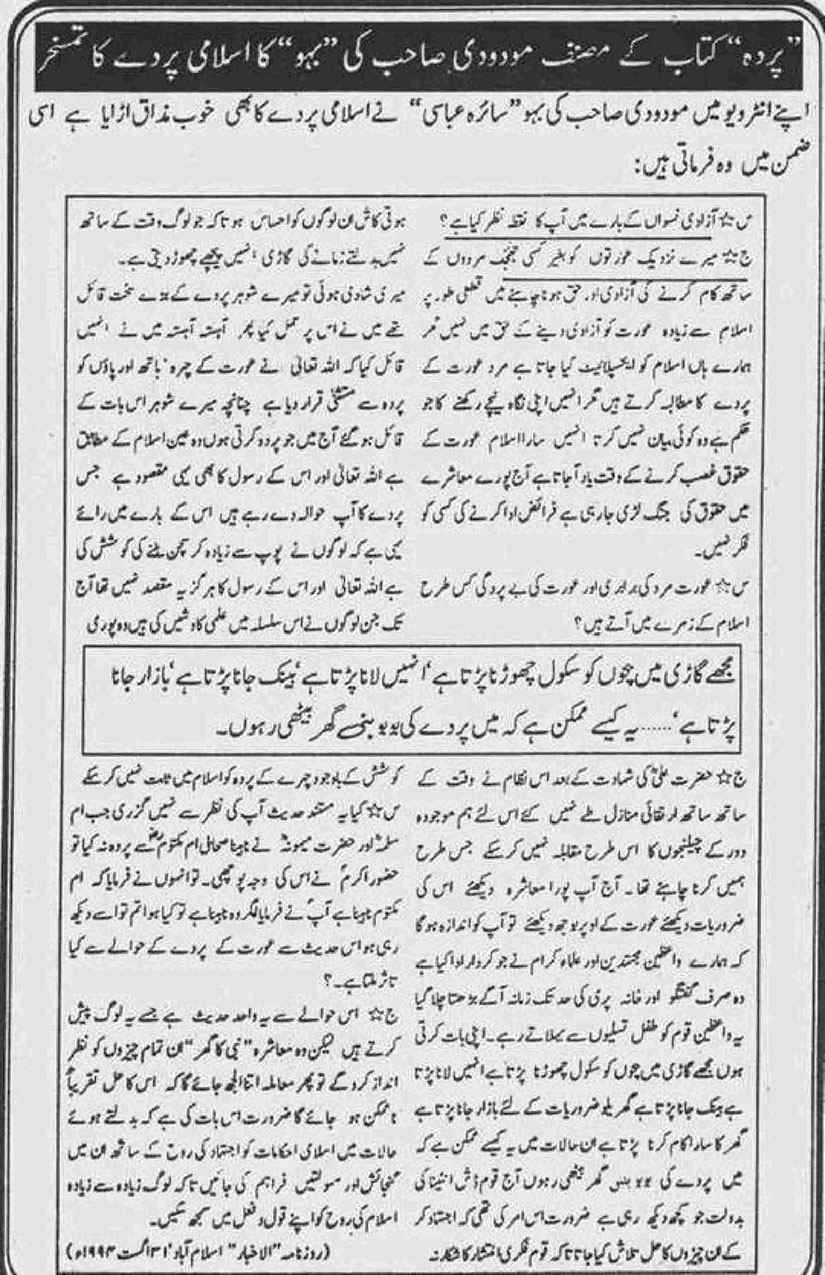 ”پردہ“ کتاب کے مصنف مودودی صاحب کی ”بہو“ کا اسلامی پردے کا تمسخر
اپنے انٹرویو میں مودودی صاحب کی بہو ”سائرہ عباسی“ نے اسلامی پردے کا بھی خوب مذاق اڑایا ہے اسی
ضمن میں وہ فرماتی ہیں:
س☆ آزادی نسواں کے بارے میں آپ کا نقطہ نظر کیا ہے؟
ج☆ میرے نزدیک عورتوں کو بغیر کسی جھجک مردوں کے
ساتھ کام کرنے کی آزادی اور حق ہونا چاہئے میں قطعی طور پر
اسلام سے زیادہ عورت کو آزادی دینے کے حق میں نہیں مگر
ہمارے ہاں اسلام کو ایکسپلائیٹ کیا جاتا ہے مرد عورت کے
پردے کا مطالبہ کرتے ہیں مگر انہیں اپنی نگاہ نیچے رکھنے کا جو
حکم ہے وہ کوئی بیان نہیں کرتا انہیں سارا اسلام عورت کے
حقوق غصب کرنے کے وقت یاد آجاتا ہے آج پورے معاشرے
میں حقوق کی جنگ لڑی جارہی ہے فرائض ادا کرنے کی کسی کو
فکر نہیں۔
س☆ عورت مرد کی برابری اور عورت کی بے پردگی کس طرح
اسلام کے زمرے میں آتے ہیں؟
ہوتی کاش ان لوگوں کو احساس ہوتا کہ جو لوگ وقت کے ساتھ
نہیں بدلتے زمانے کی گاڑی انہیں پیچھے چھوڑ دیتی ہے۔
میری شادی ہوئی تو میرے شوہر پردے کے بڑے سخت قائل
تھے میں نے اس پر عمل کیا پھر آہستہ آہستہ میں نے انہیں
قائل کیا کہ اللہ تعالی نے عورت کے چہرہ‘ ہاتھ اور پاؤں کو
پردہ سے مستثنٰی قرار دیا ہے چنانچہ میرے شوہر اس بات کے
قائل ہو گئے آج میں جو پردہ کرتی ہوں وہ عین اسلام کے مطابق
ہے اللہ تعالیٰ اور اس کے رسول کا بھی یہی مقصود ہے جس
پردے کا آپ حوالہ دے رہے ہیں اس کے بارے میں رائے
یہی ہے کہ لوگوں نے پوپ سے زیادہ کرسچن بننے کی کوشش کی
ہے اللہ تعالیٰ اور اس کے رسول کا ہرگز یہ مقصد نہیں تھا آج
تک جن لوگوں نے اس سلسلہ میں علمی کاوشیں کی ہیں وہ پوری
مجھے گاڑی میں بچوں کو سکول چھوڑنا پڑتا ہے‘ انہیں لانا پڑتا ہے‘ بینک جانا پڑتا ہے‘ بازار جانا
پڑتا ہے‘..... یہ کیسے ممکن ہے کہ میں پردے کی بوبو بنی گھر بیٹھی رہوں۔
ج☆ حضرت علیؓ کی شہادت کے بعد اس نظام نے وقت کے
ساتھ ساتھ ارتقائی منازل طے نہیں کئے اس لئے ہم موجودہ
دور کے چیلنجوں کا اس طرح مقابلہ نہیں کرسکے جس طرح
ہمیں کرنا چاہئے تھا۔ آج آپ پورا معاشرہ دیکھئے اس کی
ضروریات دیکھئے عورت کے اوپر بوجھ دیکھئے تو آپ کو اندازہ ہوگا
کہ ہمارے واعظین مجتہدین اور علماء کرام نے جو کردار ادا کیا ہے
وہ صرف گفتگو اور خانہ پری کی حد تک زمانہ آگے بڑھتا چلا گیا
یہ واعظین قوم کو طفل تسلیوں سے بہلاتے رہے۔ اپنی بات کرتی
ہوں مجھے گاڑی میں بچوں کو سکول چھوڑنا پڑتا ہے انہیں لانا پڑتا
ہے بینک جانا پڑتا ہے گھریلو ضروریات کے لئے بازار جانا پڑتا ہے
گھر کا سارا کام کرنا پڑتا ہے ان حالات میں یہ کیسے ممکن ہے کہ
میں پردے کی بوبو بنی گھر بیٹھی رہوں آج قوم ڈش انٹینا کی
بدولت جو کچھ دیکھ رہی ہے ضرورت اس امر کی تھی کہ اجتہاد کر
کے ان چیزوں کا حل تلاش کیا جاتا تاکہ قوم فکری انتشار کا شکار نہ
کوشش کے باوجود چہرے کے پردہ کو اسلام میں ثابت نہیں کر سکے
س☆ کیا یہ مستند حدیث آپ کی نظر سے نہیں گزری جب ام
سلمہؓ اور حضرت میمونہؓ نے نابینا صحابی ام مکتومؓ سے پردہ نہ کیا تو
حضور اکرمؐ نے اس کی وجہ پوچھی۔ تو انہوں نے فرمایا کہ ام
مکتوم نابینا ہے آپؐ نے فرمایا اگر وہ نابینا ہے تو کیا ہوا تم تو اسے دیکھ
رہی ہو اس حدیث سے عورت کے پردے کے حوالے سے کیا
تاثر ملتا ہے۔؟
ج☆ اس حوالے سے یہ واحد حدیث ہے جسے یہ لوگ پیش
کرتے ہیں لیکن وہ معاشرہ ”نبی کا گھر“ ان تمام چیزوں کو نظر
انداز کرو گے تو پھر معاملہ اتنا الجھ جائے گا کہ اس کا حل تقریباً
ناممکن ہو جائے گا ضرورت اس بات کی ہے کہ بدلتے ہوئے
حالات میں اسلامی احکامات کو اجتہاد کی روح کے ساتھ ان میں
گنجائش اور سہولتیں فراہم کی جائیں تاکہ لوگ زیادہ سے زیادہ
اسلام کی روح کو اپنے قول و فعل میں سمجھ سکیں۔
(روزنامہ ”الاخبار“ اسلام آباد‘ ۳۱ اگست ۱۹۹۴ء)